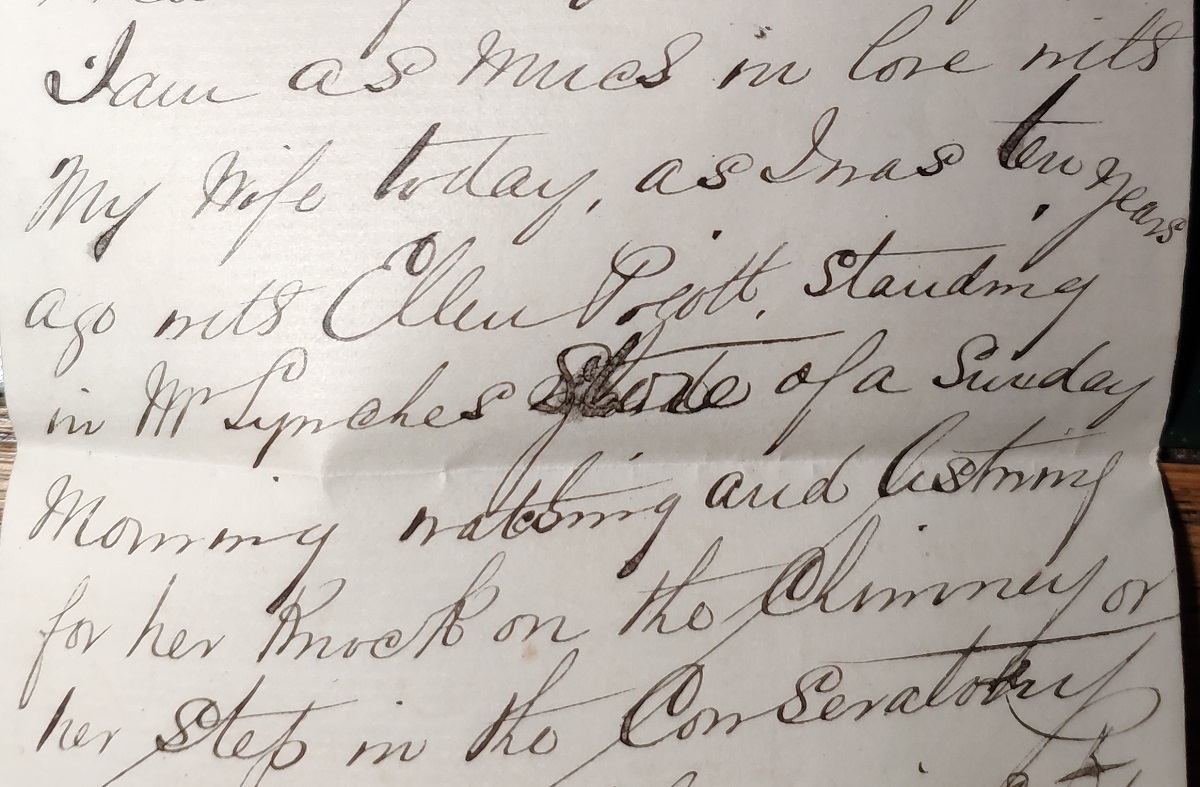 I am as much in love with
My Wife today, as I was ten years
ago with Ellen Pigott. Standing
in Mr Lynches of a Sunday
Morning watching and listning
for her Knock on the Chimney or
her Step in the Conservatory